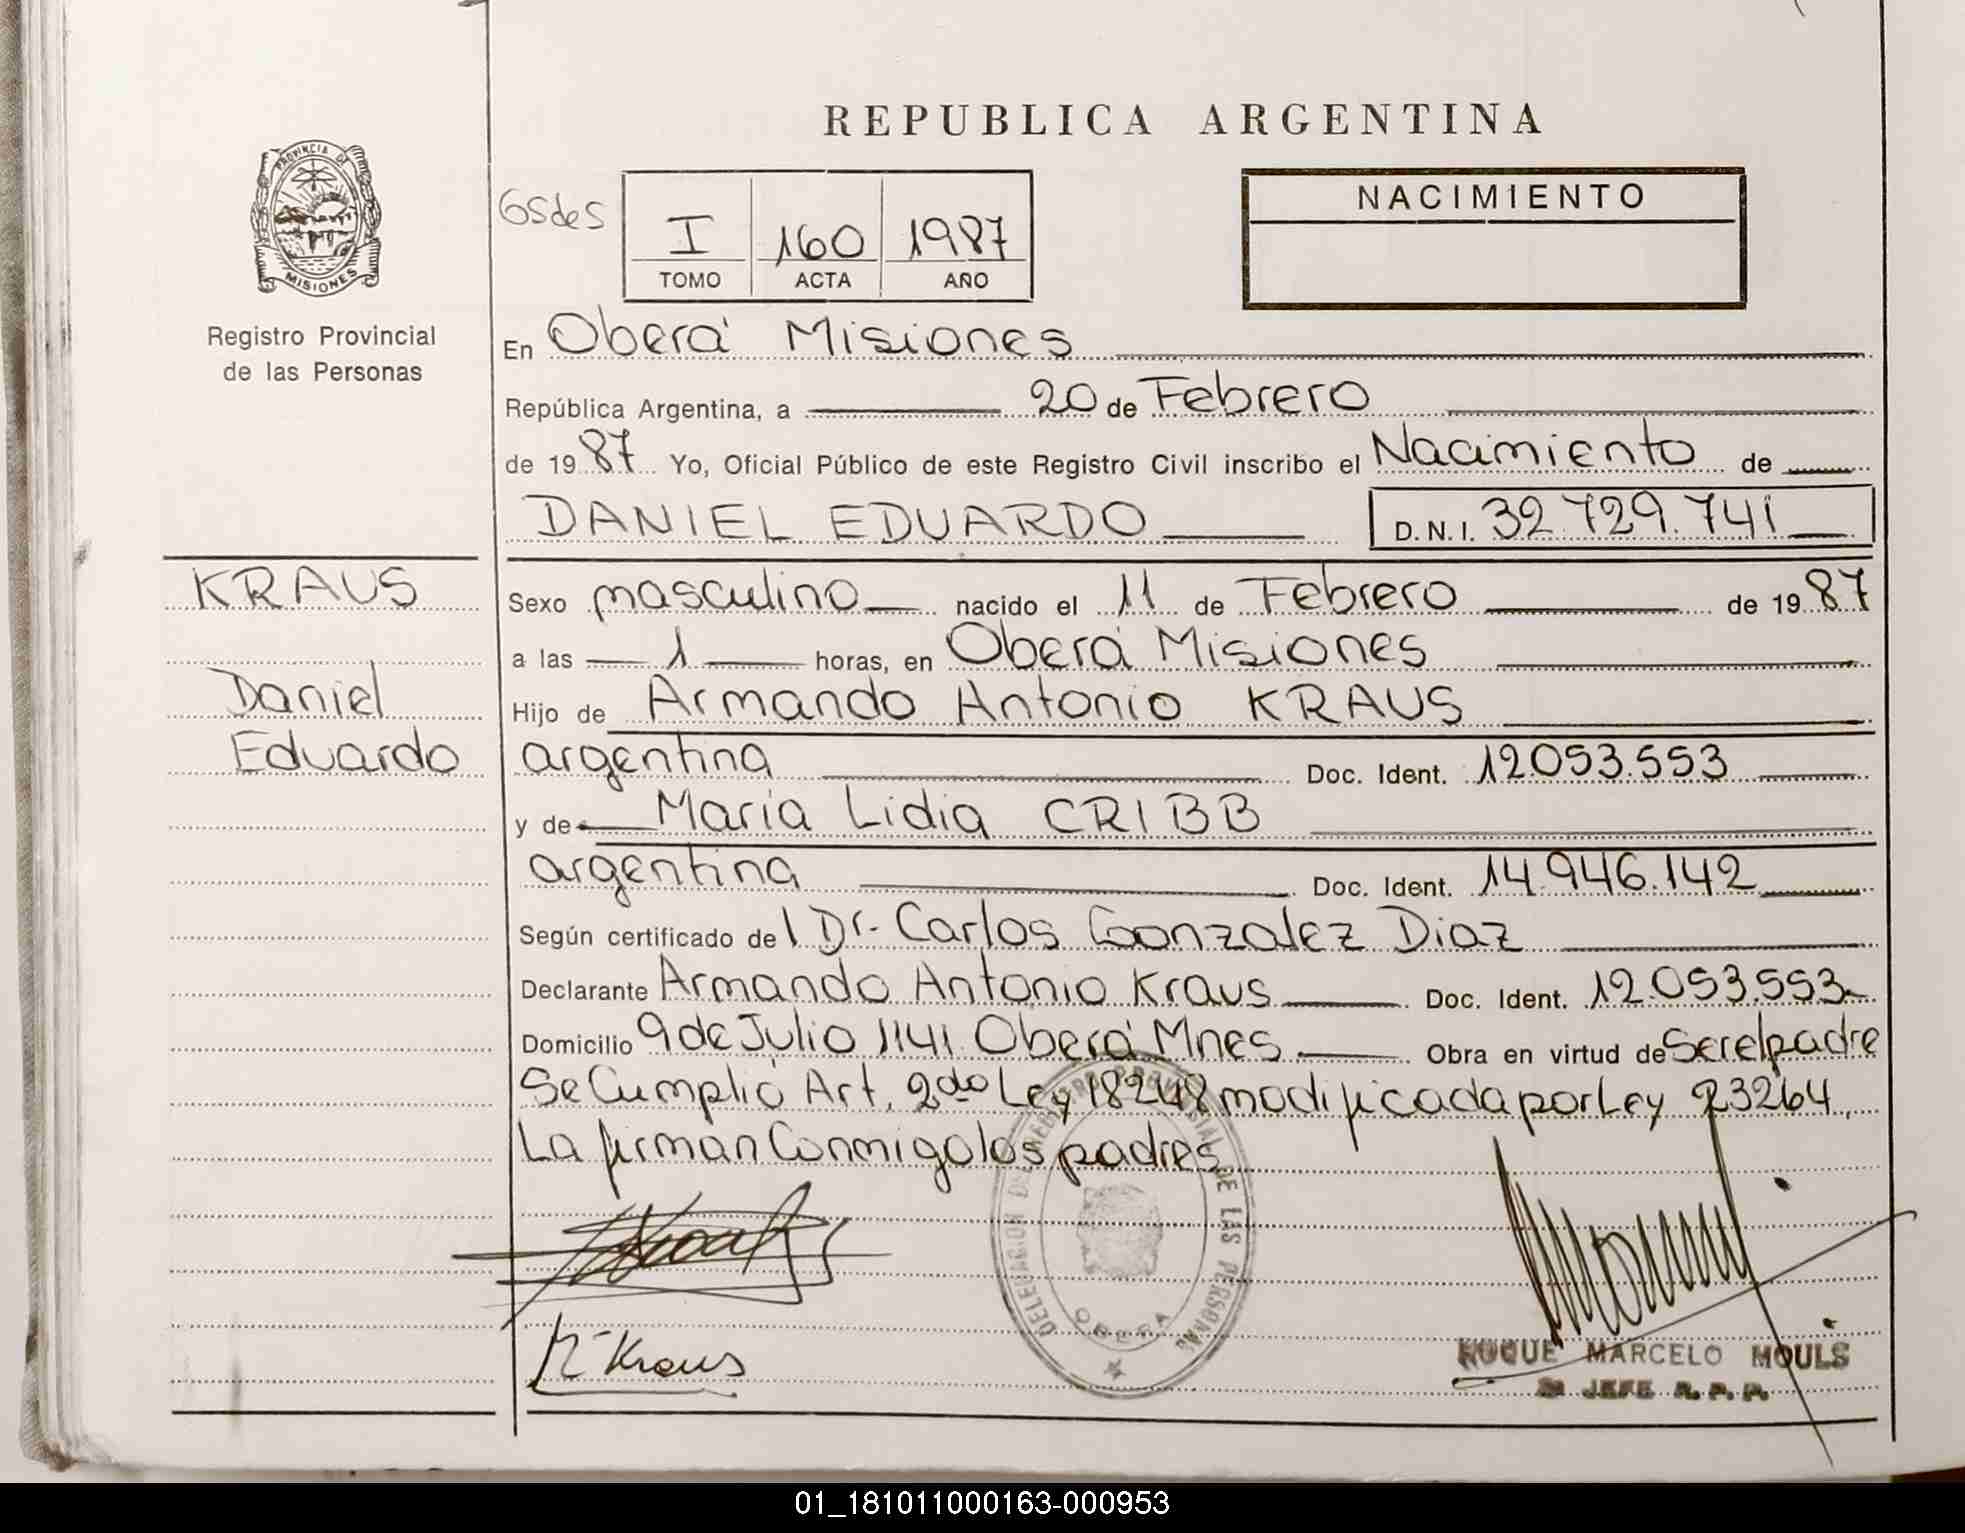 REPUBLICA ARGENTINA
PROVINCIA DE
MISIONES
Registro Provincial
de las Personas
GSdeS
I 160 1987
TOMO ACTA AÑO
NACIMIENTO
En Oberá Misiones
República Argentina, a 20 de Febrero
de 1987 Yo, Oficial Público de este Registro Civil inscribo el Nacimiento de
DANIEL EDUARDO D.N.I. 32.729.741
KRAUS
Daniel
Eduardo
Sexo masculino nacido el 11 de Febrero de 1987
a las 1 horas, en Oberá Misiones
Hijo de Armando Antonio KRAUS
argentina Doc. Ident. 12.053.553
y de María Lidia CRIBB
argentina Doc. Ident. 14.946.142
Según certificado del Dr. Carlos Gonzalez Diaz
Declarante Armando Antonio Kraus Doc. Ident. 12.053.553
Domicilio 9 de Julio 1141 Oberá Mnes Obra en virtud de Ser el padre
Se Cumplió Art. 2do Ley 18248 modificada por Ley 23264,
La firman Conmigo los padres
DELEGACION DEL REGISTRO PROVINCIAL DE LAS PERSONAS
OBERA
Kraus
ROQUE MARCELO MOULS
JEFE R.P.P.
01_181011000163-000953